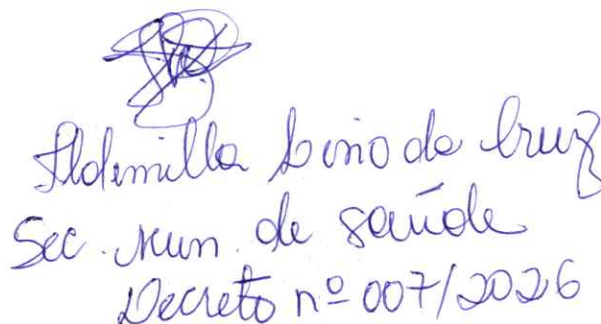 Aldemilla Lino da Cruz
Sec. Mun. de saúde
Decreto nº 007/2026